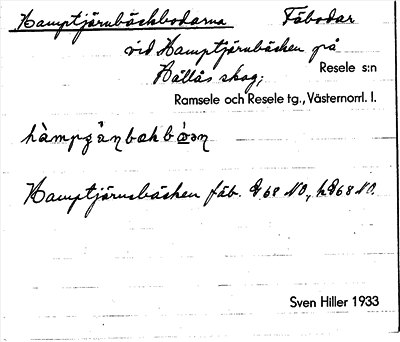 Hamptjärnbäckbodarna Fäbodar
vid Hamptjärnbäcken på
Hällås skog; Resele s:n
Ramsele och Resele tg., Västernorrl. l.
Hamptjärnsbäcken fäb.
Sven Hiller 1933